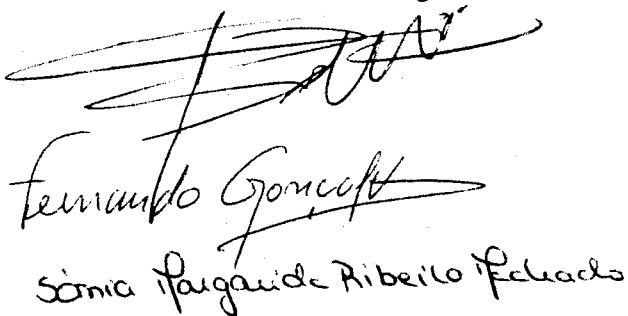 Fernando Gonçalves
Sónia Margarida Ribeiro Machado